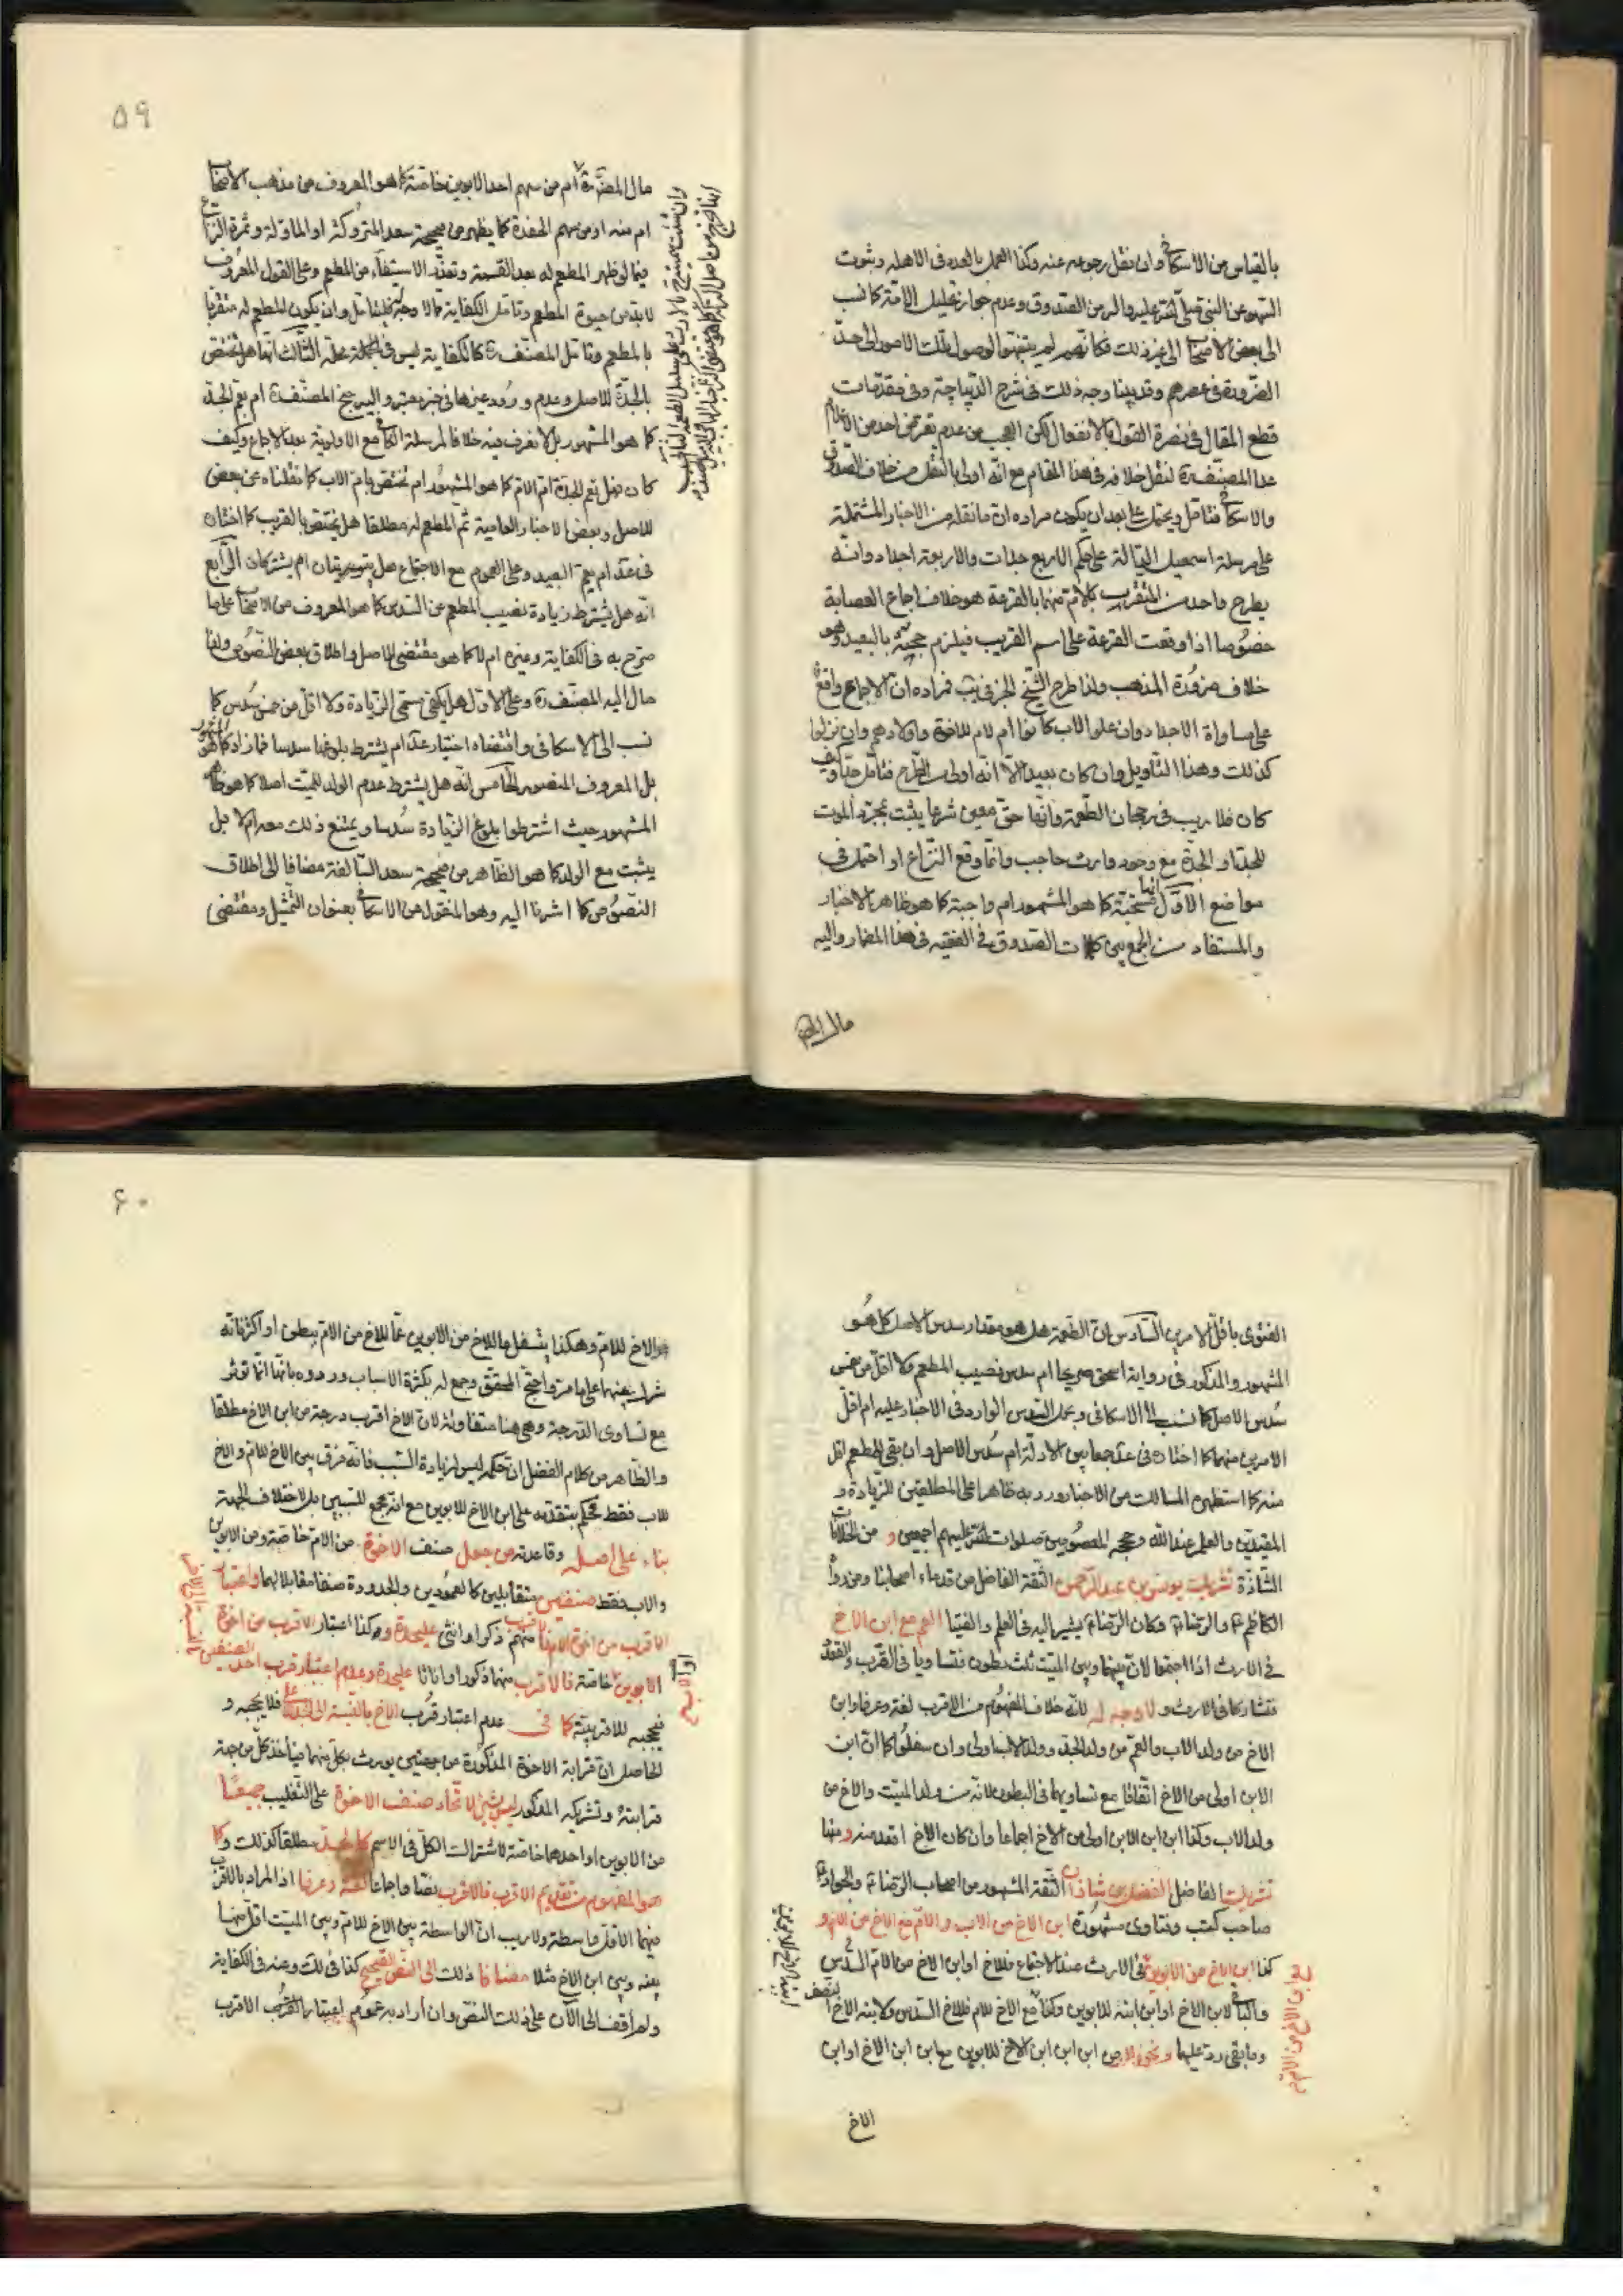 بالقياس من الاسكافى وان نقل رجوعه عنه وكذا العمل بالعدد فى الاهلة وثبوت
السهو عن النبى صلى الله عليه واله من الصدوق وعدم جواز تحليل الامة كما نسب
الى بعض الاصحاب الى غير ذلك فكانهم لم يتنبهوا لوصول تلك الامور الى حد
الضرورة فى عصرهم وقد بينا وجه ذلك فى شرح الديباجة وفى مقدمات
قطع المقال فى نصرة القول بالانفعال لكن العجب من عدم تعرض احد من الاعلام
عدا المصنف ره لنقل خلافه فى هذا المقام مع انه اولى بالنقل من خلاف الصدوق
والاسكافى فتامل ويحتمل على بعد ان يكون مراده ان ما نقله من الاخبار المشتملة
على مرسلة اسمعيل الدالة على حكم الاربع جدات والاربعة اجداد وانه
يطرح واحد من المتقرب بالام منهما بالقرعة هو خلاف اجماع العصابة
خصوصا اذا وقعت القرعة على اسم القريب فيلزم حجبه بالبعيد وهو
خلاف ضرورة المذهب ولذا طرح الشيخ الخبر فى يب فمراده ان الاجماع واقع
على مساواة الاجداد وان علوا لاب كانوا ام لام للاخوة واولادهم وان نزلوا
كذلك وهذا التأويل وان كان بعيدا الا انه اولى من الطرح فتأمل جيدا وكيف
كان فلا ريب فى رجحان الطعمة وانها حق معين شرعا يثبت بمجرد الموت
للجد او الجدة مع وجود وارث حاجب وانما وقع النزاع او احتمل فى
مواضع الاول انها مستحبة كما هو المشهور ام واجبة كما هو ظاهر الاخبار
والمستفاد من الجمع بين كلمات الصدوق فى الفقيه فى هذا المضمار واليه
مال المص
٥٩
مال المصنف ره ام من سهم احد الابوين خاصة كما هو المعروف من مذهب الاصحاب
ام منه او من سهم الحفدة كما يظهر من صحيحة سعد المتروكة او الماولة وثمرة النزاع
فيما لو ظهر المطعم له بعد القسمة وتعذر الاستيفاء من المطعم وعلى القول المعروف
لا بد من حيوة المطعم وتامل الكفاية مما لا وجه له فليتامل وان يكون المطعم له متقربا
بالمطعم وتامل المصنف ره كالكفاية ليس فى محله الثالث انها هل تختص
بالجدة للاصل وعدم ورود غيرها فى خبر معتبر واليه جنح المصنف ره ام تعم الجد
كما هو المشهور بل لا نعرف فيه خلافا لمرسلة الكافى مع الاولوية بعد الاجماع وكيف
كان فهل تعم الجدة ام الام كما هو المشهور ام تختص بام الاب كما نقلناه عن بعض
للاصل وبعض الاخبار العامية ثم المطعم له مطلقا هل يختص بالقريب كما اختاره
فى عد ام يعم البعيد وعلى العموم مع الاجتماع هل يترتبان ام يشتركان الرابع
انه هل يشترط زيادة نصيب المطعم عن السدس كما هو المعروف من الاصحاب على ما
صرح به فى الكفاية وغيره ام لا كما هو مقتضى الاصل واطلاق بعض النصوص ولذا
مال اليه المصنف ره وعلى الاول هل يكفى مسمى الزيادة ولا اقل من خمس سدس كما
نسب الى الاسكافى واقتضاه اختيار عد ام يشترط بلوغها سدسا فما زاد كما هو المشهور
بل المعروف المنصور الخامس انه هل يشترط عدم الولد للميت اصلا كما هو ظاهر
المشهور حيث اشترطوا بلوغ الزيادة سدسا ويمتنع ذلك معه ام لا بل
يثبت مع الولد كما هو الظاهر من صحيحة سعد السالفة مضافا الى اطلاق
النصوص كما اشرنا اليه وهو المنقول عن الاسكافى بعنوان التمثيل ومقتضى
الفتوى باقل الامرين السادس ان الطعمة هل هو مقدار سدس الاصل كما هو
المشهور والمذكور فى رواية اسحق صريحا ام سدس نصيب المطعم ولا اقل من خمس
سدس الاصل كما نسب الى الاسكافى وبحمل السدس الوارد فى الاخبار عليه ام اقل
الامرين منهما كما اختاره فى عد جمعا بين الادلة ام سدس الاصل وان بقى للمطعم اقل
منه كما استظهره المسالك من الاخبار ورد به ظاهرا على المطلقين للزيادة و
المقيدين والعلم عند الله وحججه المعصومين صلوات الله عليهم اجمعين و من الخلافات
الشاذة تشريك يونس بن عبد الرحمن الثقة الفاضل من قدماء اصحابنا ومن رواة
الكاظم ع والرضا ع وكان الرضا ع يشير اليه فى العلم والفتيا العم مع ابن الاخ
فى الارث اذا اجتمعا لان بينهما وبين الميت ثلث بطون فتساويا فى القرب والقعدد
فتشاركا فى الارث و لا وجه له لانه خلاف المفهوم من الاقرب لغة وعرفا وابن
الاخ من ولد الاب والعم من ولد الجد وولد الاب اولى وان سفلوا كما ان ابن
الابن اولى من الاخ اتفاقا مع تساويهما فى البطون لانه من ولد الميت والاخ من
ولد الاب وكذا ابن ابن الابن اولى من الاخ اجماعا وان كان الاخ اقعد منه و منها
تشريك الفاضل الفضل بن شاذان الثقة المشهور من اصحاب الرضا ع والجواد ع
صاحب كتب وفتاوى مشهورة ابن الاخ من الاب والام مع الاخ من الام و
كذا ابن الاخ من الابوين فى الارث عند الاجتماع فللاخ او ابن الاخ من الام السدس
والباقى لابن الاخ او ابن ابنه للابوين وكذا مع الاخ للام فللاخ السدس ولابنة الاخ النصف
وما بقى رد عليهما ابن ابن ابن الاخ للابوين مع ابن ابن الاخ او ابن
الاخ
٦٠
والاخ للام وهكذا يتسفل ما للاخ من الابوين عما للاخ من الام ببطن او اكثر فانه
شرك بينهما على ما مر واحتج المحقق وجمع له بكثرة الاسباب وردوه بانها انما تؤثر
مع تساوى الدرجة وهى هنا متفاوتة لان الاخ اقرب درجة من ابن الاخ مطلقا
والظاهر من كلام الفضل ان حكمه ليس لزيادة السبب فانه فرق بين الاخ للام والاخ
للاب فقط فحكم بتقدمه على ابن الاخ للابوين مع انه مجمع للسببين بل لاختلاف الجهة
بناء على اصله وقاعدته من جعل صنف الاخوة من الام خاصة ومن الابوين
والاب فقط صنفين متقابلين كالعمودين والجدودة صنفا مقابلا لهما واعتبار
الاقرب من اخوة الام فالاقرب منهم ذكرا او انثى عليحدة وكذا اعتبار الاقرب من اخوة
الابوين خاصة فالاقرب منهما ذكورا واناثا عليحدة وعدم اعتبار قرب احد الصنفين
فيحجبه للاقربية كما فى عدم اعتبار قرب الاخ بالنسبة الى الجد الاعلى فلا يحجبه و
الحاصل ان قرابة الاخوة المذكورة من جهتين يورث بكل منهما فياخذ كل من جهة
قرابته وتشريكه المذكور ليس بشئ لاتحاد صنف الاخوة على التغليب جميعا
من الابوين او احدهما خاصة لاشتراك الكل فى الاسم كالجد مطلقا كذلك و كما
هو المفهوم من تقديم الاقرب فالاقرب نصا واجماعا لغة وعرفا اذ المراد بالاقرب
فيهما الاقل واسطة ولا ريب ان الواسطة بين الاخ للام وبين الميت اقل منها
بينه وبين ابن الاخ مثلا مضافا ذلك الى النص الصحيح كذا فى لك وعنه فى الكفاية
ولم أقف الى الآن على ذلك النص وان أراد به عموم اعتبار القرب الاقرب